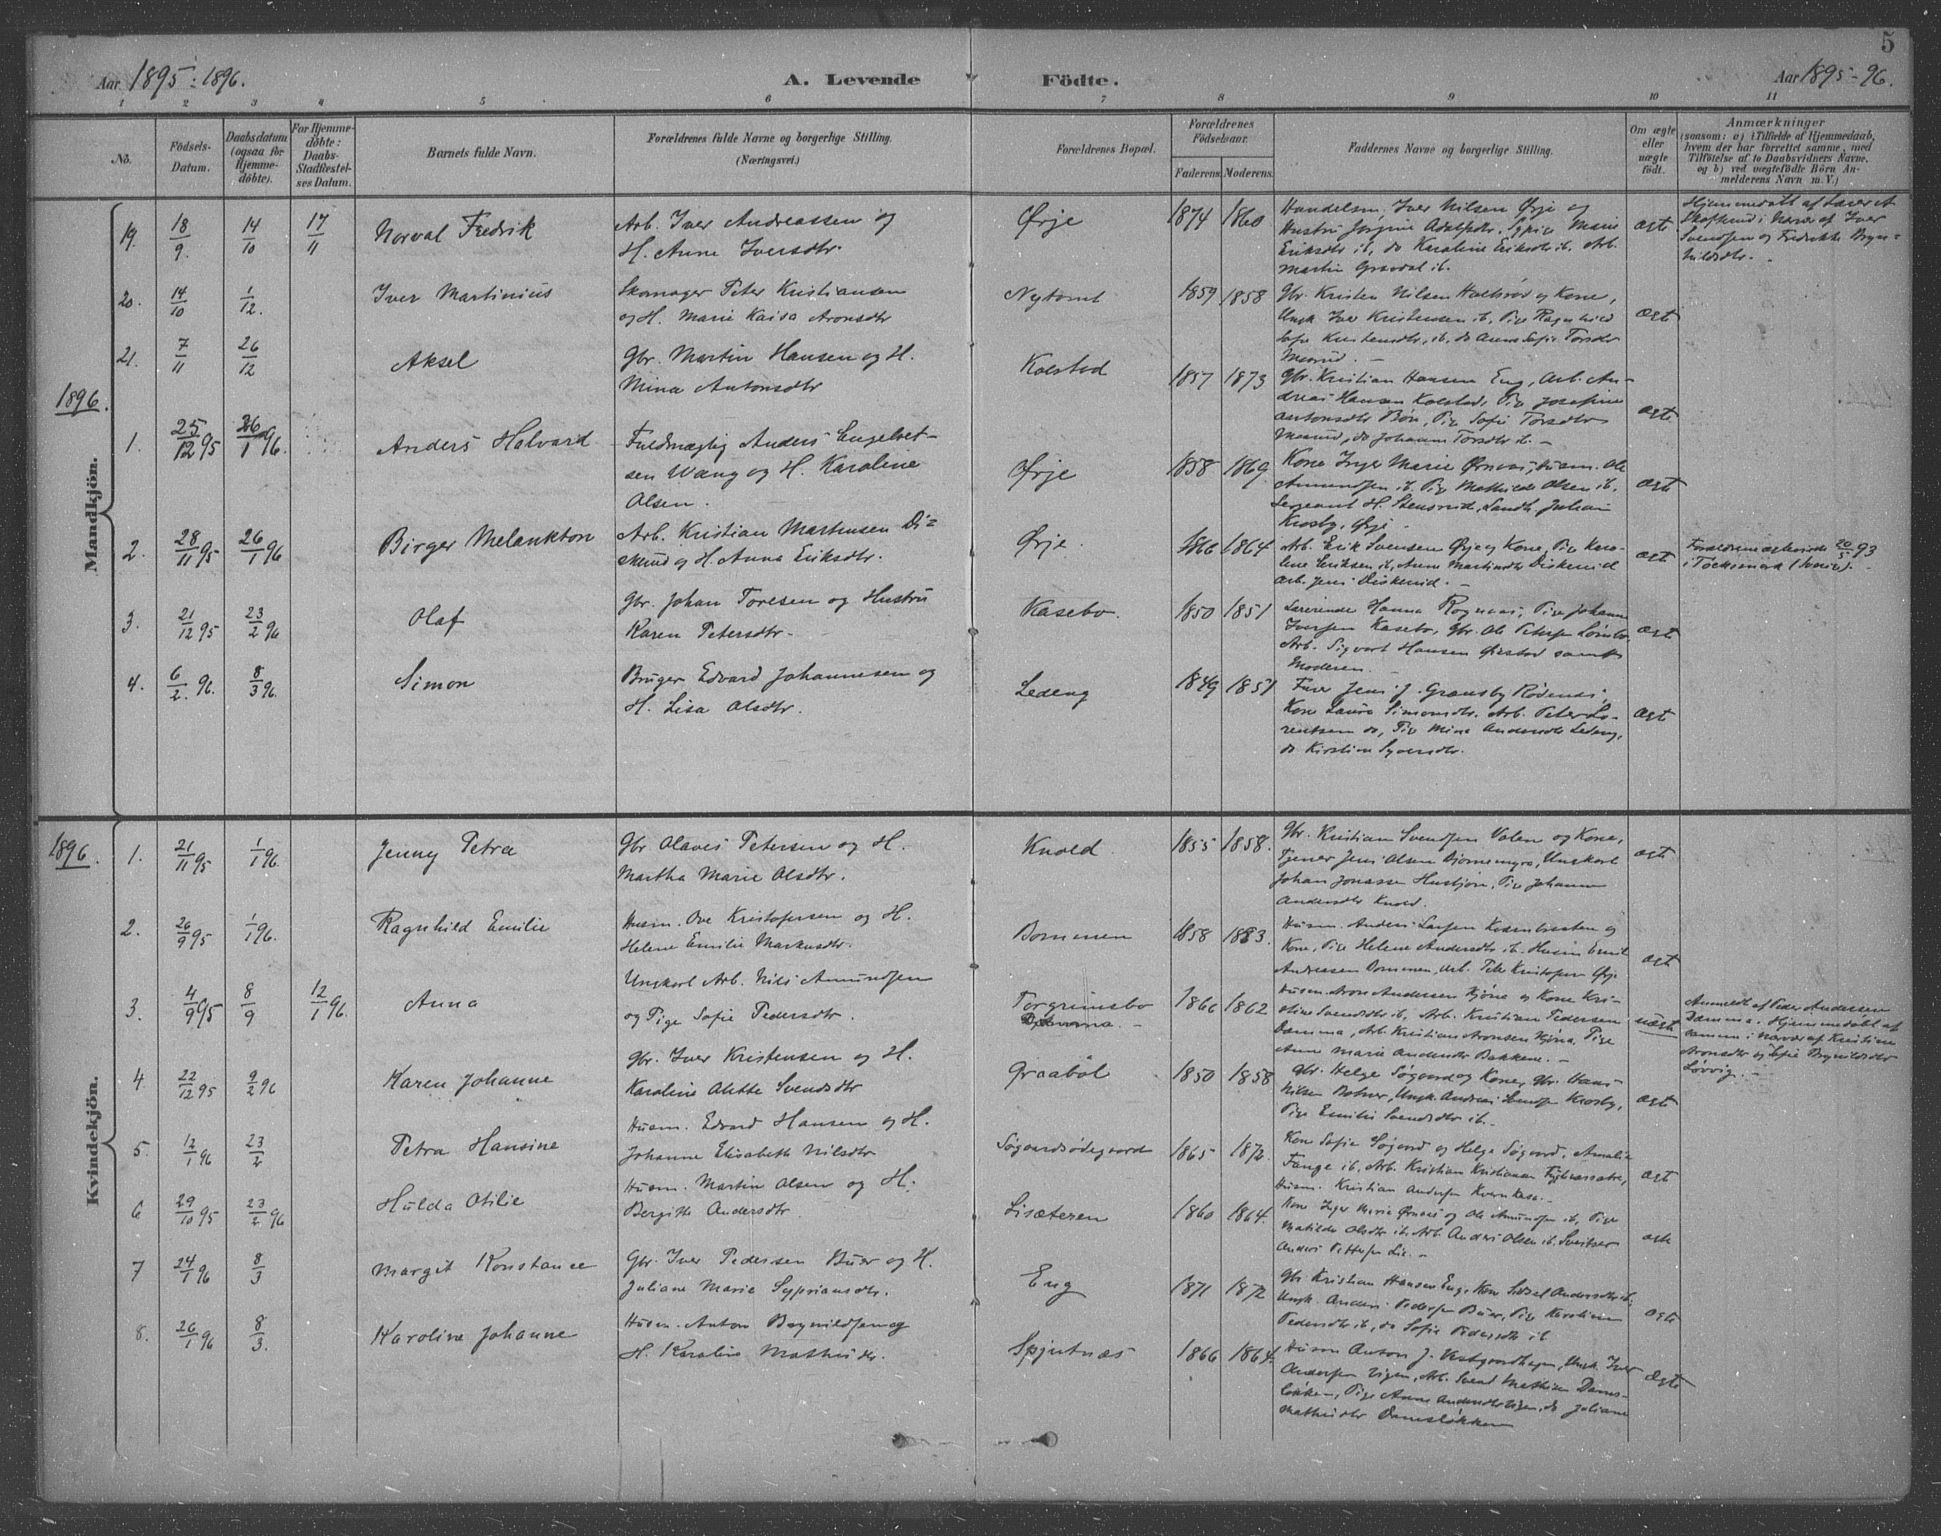 5
Aar 1895-1896.
A. Levende Fødte.
Aar 1895-96.
1 2 3 4 5 6 7 8 9 10 11
No.
Fødsels-
Datum.
Daabsdatum
(ogsaa for
Hjemme-
døbte).
For Hjemme-
døbte:
Daabs-
Stadfæstel-
ses Datum.
Barnets fulde Navn.
Forældrenes fulde Navne og borgerlige Stilling.
(Næringsvei.)
Forældrenes Bopæl.
Forældrenes
Fødselsaar.
Faderens. Moderens.
Faddernes Navne og borgerlige Stilling.
Om ægte
eller
uægte
født.
Anmærkninger
(saasom: a) i Tilfælde af Hjemmedaab,
hvem der har forrettet samme, med
Tilføielse af to Daabsvidners Navne,
og b) ved uægtefødte Børn An-
melderens Navn m. V.)
Mandkjön.
19. 18/9. 14/10 17/11 Norval Fredrik
Arb. Iver Andreassen og
H. Anne Iversdtr.
Ørje 1874 1860
Handelsm. Iver Nilsen Ørje og
Hustru Jørgine Adolfsdtr. Marie
Eriksdtr ib, do Karoline Eriksdtr ib. Arb.
Martin Grasdal ib.
ægte
Hjemmedøbt af Lærer A.
i Nærvær af Iver
Svendsen og Fredrikke Bryn-
hildsdtr.
20. 14/10 1/12. Iver Martinius
Skomager Peter Kristiansen
og H. Marie Kaisa Aronsdtr
Nytomt 1859 1858
Gbr. Kristen Nilsen og Kone,
Ungk Iver Kristensen ib, Pige Ragnhild
Sofie Kristensdtr, ib, do Anne Sofie Torsdtr
ægte
21. 7/11 26/12 Aksel
Gbr. Martin Hansen og H.
Mina Antonsdtr
Kolstad 1857 1873
Gbr. Kristian Hansen Eng, Arb. An-
dreas Hansen Kolstad, Pige Josefine
Antonsdtr Bøn, Pige Sofie Torsdtr
do Johanne Torsdtr ib.
ægte
1896.
1. 25/12 95 26/1 96. Anders Halvard
Fuldmægtig Anders Engelret-
sen Wang og H. Karoline
Olsen.
Ørje 1858 1869.
Kone Inger Marie Ørnæs, Husm. Ole
Amundsen ib. Pige Mathilde Olsen ib.
Sergeant H. Stensrud, Landh. Julian
Krosby, Ørje.
ægte
2. 28/11 95 26/1 96 Birger Melankton
Arb. Kristian Martinsen Di-
skerud og H. Anna Eriksdtr.
Ørje. 1866 1864
Arb. Erik Svensen Ørje og Kone, Pige Karo-
line Eriksen ib, Anne Martinsdtr Diskerud
Arb. Jens Diskerud.
ægte
Forældrene ægteviede 20/5 93
i Töcksmark (Sverige).
3. 21/12 95 23/2 96 Olaf
Gbr. Johan Toresen og Hustru
Karen Petersdtr.
Kasebo. 1850 1851
Lærerinde Hanna Rognaas, Pige Johanne
Iversen Kasebo, Gbr. Ole Petersen
Arb. Sigvart Hansen samt
Moderen.
ægte
4. 6/2. 96. 8/3 96. Simon
Bruger Edvard Johannesen og
H. Lisa Olsdtr.
Ledeng 1849 1851
Jens J. Gransby Rødenæs,
Kone Laura Simonsdtr. Arb. Peter Lo-
rentsen do, Pige Mina Andersdtr Ledeng,
do Kirstine Syversdtr.
ægte
Kvindekjön.
1896.
1. 21/11 95 1/1 96. Jenny Petra
Gbr Olaves Petersen og H.
Martha Marie Olsdtr.
Knold. 1855 1858.
Gbr. Kristian Svendsen Volen og Kone,
Tjener Jens Olsen Bjørnemyra, Ungkarl
Johan Jonassen, Pige Johanne
Andersdtr Knold.
ægte
2. 26/9 95 1/1 96. Ragnhild Emilie
Husm. Ove Kristofersen og H.
Helene Emilie Markusdtr.
Bommen 1858 1863.
Husm. Anders Larsen og
Kone, Pige Helene Andersdtr ib. Husm Emil
Andreassen Bommen, Arb. Peter Kristofersen Ørje
ægte
3. 4/9 95 8/9 12/1 96. Anna
Ungkarl Arb. Nils Amundsen
og Pige Sofie Pedersdtr.
Torgrimsbo
Damma. 1866 1862
Husm. Aron Andersen Kjøne og Kone Kri-
stine Svendsdtr ib, Arb. Kristian Pedersen
Damma, Arb Kristian Aronsen Kjøna, Pige
Anne Marie Andersdtr Bakkene.
uægte
Anmeldt af Peder Andersen
Damma. Hjemmedøbt af
samme i Nærvær af Kristine
Aronsdtr og Sofie Brynildsdtr
Løvvig.
4. 22/12 95 9/2 96 Karen Johanne
Gbr. Iver Kristensen og H.
Karoline Alette Svendsdtr
Graabøl 1850 1858
Gbr. Helge Søgaard og Kone, Gbr. Hans
Nilsen Botner, Ungk Andreas Svendsen Krosby,
Pige Emilie Svendsdtr ib.
ægte
5. 12/1 96 23/2 Petra Hansine
Husm. Edvard Hansen og H.
Johanne Elisabeth Nilsdtr
Søgaardsødegaard 1865 1872.
Kone Sofie Søgaard og Helge Søgaard, Amalie
Fange ib, Arb. Kristian Kristiansen
Husm. Kristian Andersen
ægte
6 29/10 95 23/2 96 Hulda Otilie
Husm. Martin Olsen og H.
Bergitte Andersdtr.
Lisæteren 1860 1864.
Kone Inger Marie Ørnæs og Ole Amundsen ib, Pige
Matilde Olsdtr ib. Arb. Anders Olsen ib. Sveitser
Anders Pettersen Lie.
ægte
7 24/1 96 8/3 Margit Konstance
Gbr. Iver Pedersen Buer og H.
Juliane Marie Sypriansdtr.
Eng 1871 1872
Gbr Kristian Hansen Eng, Kone Sidsel Andersdtr ib,
Ungk. Anders Pedersen Buer, Pige Karoline
Pedersdtr ib, do Sofie Pedersdtr ib
ægte
8. 26/1 96 8/3. Karoline Johanne
Husm. Anton Brynildsen og
H. Karoline Mathisdtr.
Spjutnæs 1866 1864.
Husm Anton J. Vestgaardhagen, Ungk. Iver
Andersen Vigen, Arb. Svend Mathisen Dams-
løkken, Pige Anne Andersdtr Vigen, do Juliane
Mathisdtr Damsløkken
ægte